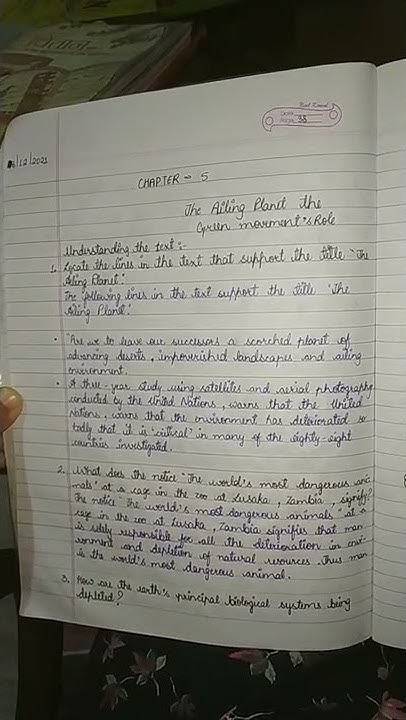 DATE
PAGE 38
/12/2021
CHAPTER → 5
The Ailing Planet the
Green movement's Role
Understanding the text :-
1. Locate the lines in the text that support the title "The
Ailing Planet."
The following lines in the text support the title 'The
Ailing Planet'
• "Are we to leave our successors a scorched planet of
advancing deserts, impoverished landscapes and ailing
environment.
• A three-year study using satellites and aerial photography
conducted by the United Nations, warns that the United
Nations, warns that the environment has deteriorated so
badly that it is 'critical' in many of the eighty-eight
countries investigated.
2. What does the notice "The world's most dangerous ani
mals" at a cage in the zoo at Lusaka, Zambia, signify?
The notice "The world's most dangerous animals" at a
cage in the zoo at Lusaka, Zambia signifies that man
is solely responsible for all the deterioration in envi-
ronment and depletion of natural resources. Thus man
is the world's most dangerous animal.
3. How are the earth's principal biological systems being
depleted?